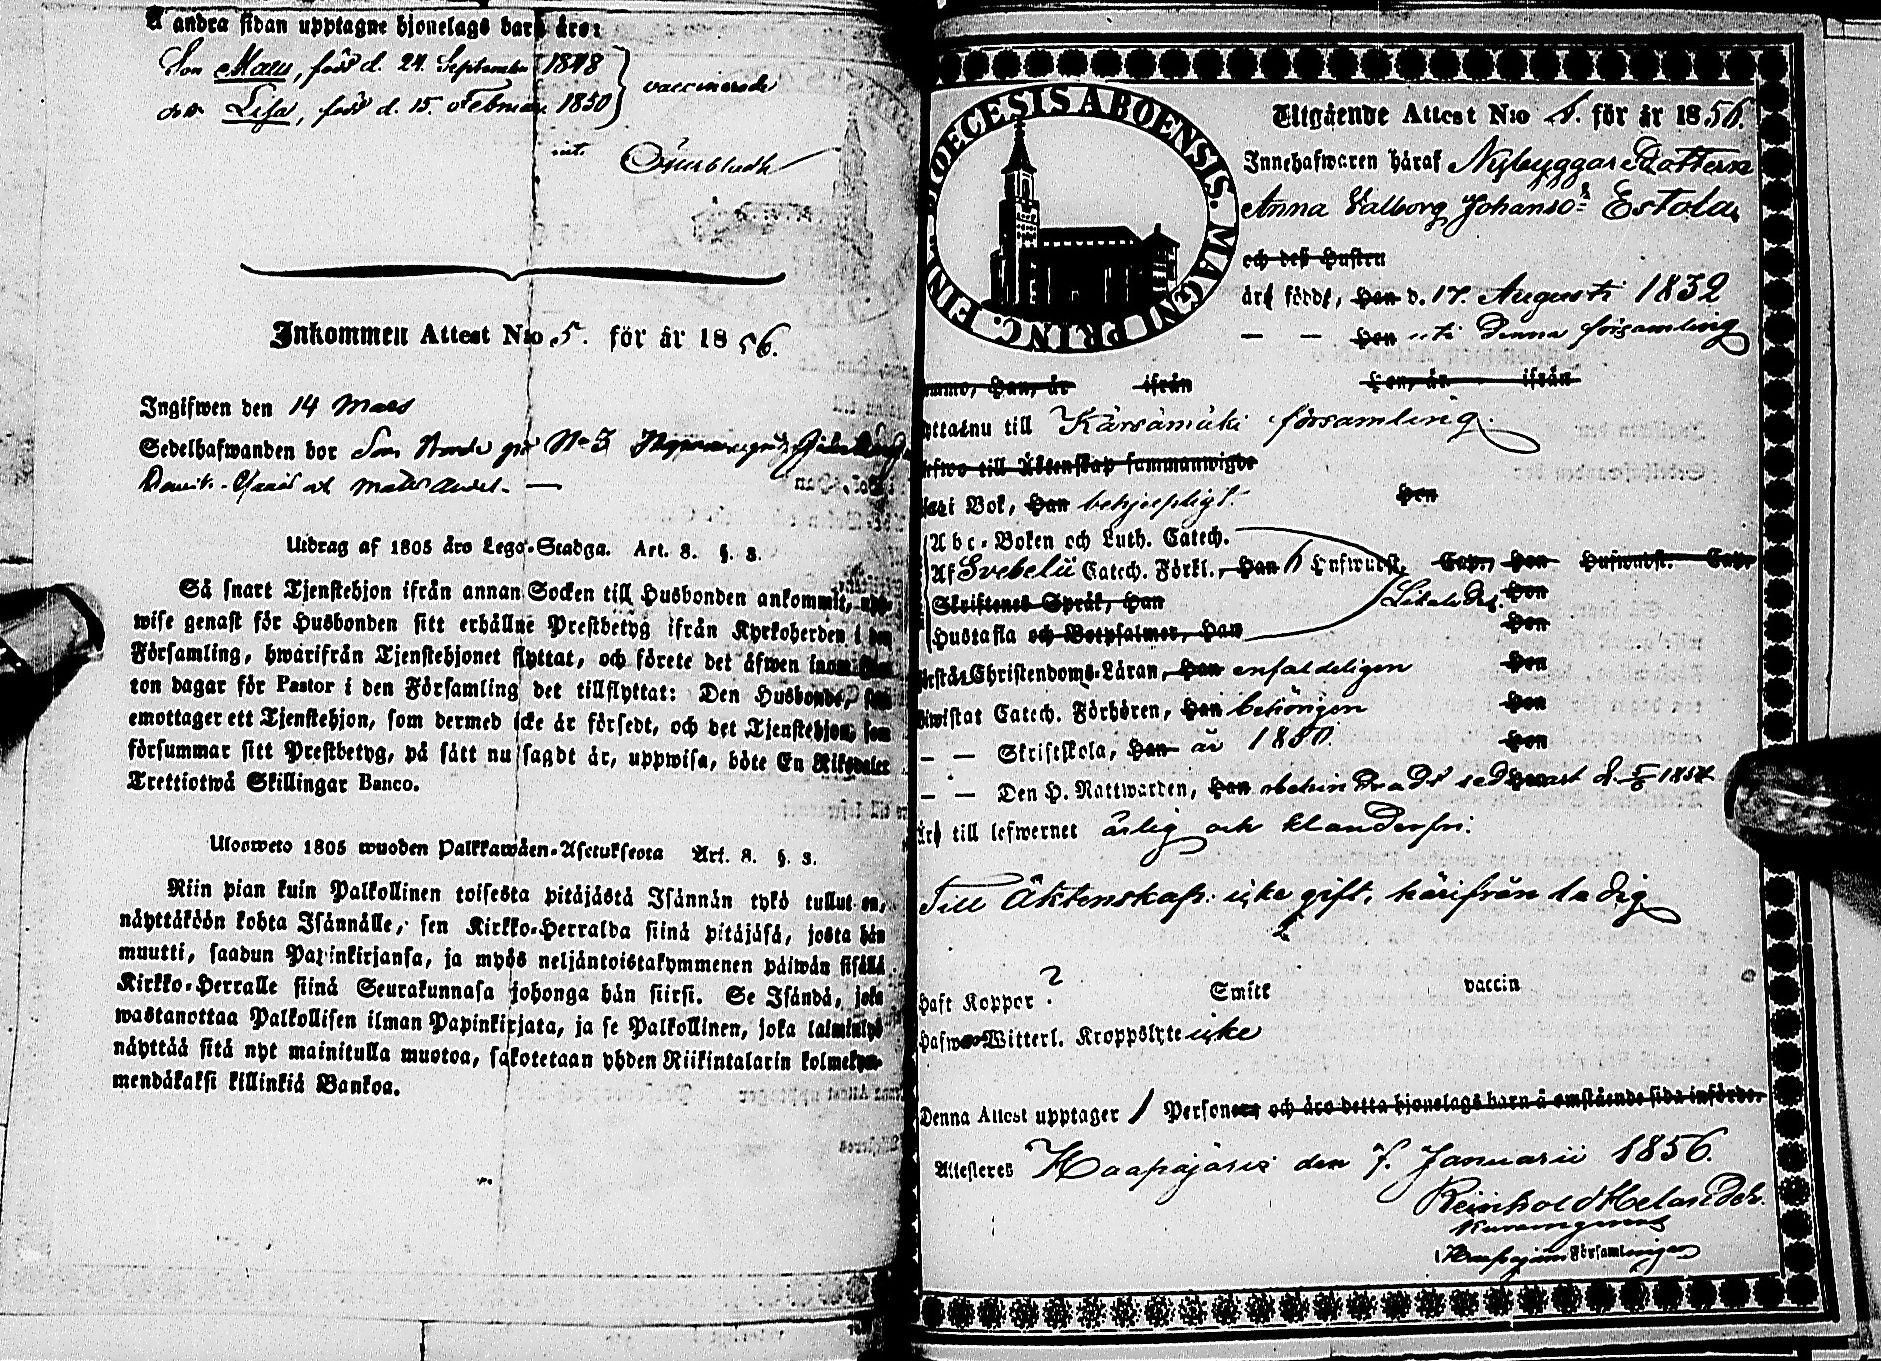 Å andra sidan upptagne hjonelags barn äro:
Son Matts, född d. 24. September 1848
dottr. Lisa, född d. 15. Februari 1850
vaccinerade
Inkommen Attest N:o 5. för år 1856.
Ingifwen den 14 Mars
Sedelhafwanden bor
Utdrag af 1805 års Lego-Stadga. Art. 8. §. 3.
Så snart Tjenstehjon ifrån annan Socken till Husbonden ankommit, upp-
wise genast för Husbonden sitt erhållne Prestbetyg ifrån Kyrkoherden i den
Församling, hwarifrån Tjenstehjonet flyttat, och förete det äfwen inom fjor-
ton dagar för Pastor i den Församling det tillflyttat: Den Husbonde, som
emottager ett Tjenstehjon, som dermed icke är försedt, och det Tjenstehjon, som
försummar sitt Prestbetyg, på sätt nu sagdt är, uppwisa, böte En Riksdaler
Trettiotwå Skillingar Banco.
Ulosweto 1805 wuoden Palkkawäen-Asetuksesta Art. 8. §. 3.
Niin pian kuin Palkollinen toisesta pitäjästä Isännän tykö tullut on,
näyttäköön kohta Isännälle, sen Kirkko-Herralda siinä pitäjäsä, josta hän
muutti, saadun Papinkirjansa, ja myös neljäntoistakymmenen päiwän sisällä
Kirkko-Herralle siinä Seurakunnasa johonga hän siirsi. Se Isändä, joka
wastanottaa Palkollisen ilman Papinkirjata, ja se Palkollinen, joka laiminlyö
näyttää sitä nyt mainitulla muotoa, sakotetaan yhden Riikintalarin kolmekym-
mendäkaksi killinkiä Bankoa.
DIOECESIS ABOENSIS. MAGNI PRINC. FINL.
Utgående Attest N:o för år 1856.
Innehafwaren häraf Nybyggar Dottern
Anna Valborg Johansdr Estola,
och deß Hustru
äro födde, Han d. 17. Augusti 1832
— — Hon uti Denna församling
Han, är ifrån Hon, är ifrån
nu till Kärsämäki församling.
till Äktenskap sammanwigde
i Bok, Han behjelpligt. Hon
Abc-Boken och Luth. Catech.
Af Svebelii Catech. Förkl., Han 6 Hufwudst. Capr, Hon Hufwudst. Capr
Skriftenes Språk, Han Hon
Hustafla och Botpsalmer, Han Hon
Christendoms-Läran, Han enfaldeligen Hon
Catech. Förhören, Han behörigen Hon
— — Skriftskola, Han är 1850. Hon
— — Den H. Nattwarden, Han obehindradt sednast d. 1854
till lefwernet ärlig och klanderfri.
Till Äktenskap: icke gift, härifrån ledig
haft Koppor ? Smitt vaccin
Witterl. Kroppslyte icke
Denna Attest upptager 1 Personer och äro detta hjonelags barn å omstående sida införde.
Attesteres Haapajärvi den 7. Januarii 1856.
Reinhold Helander.
Församlingen